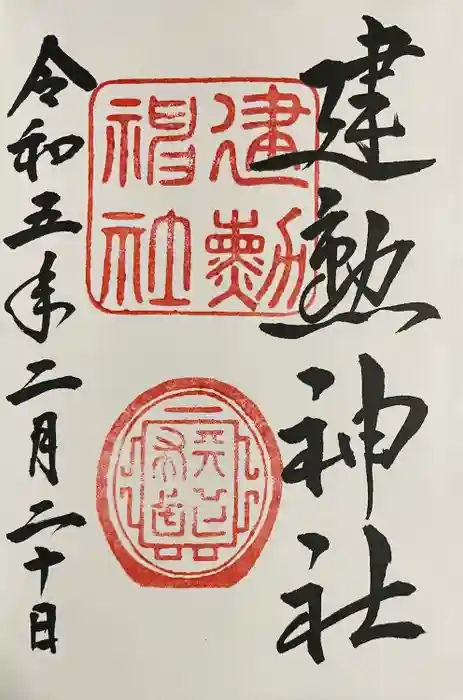 建勲神社
建勲
神社
天下
布武
令和五年二月二十日